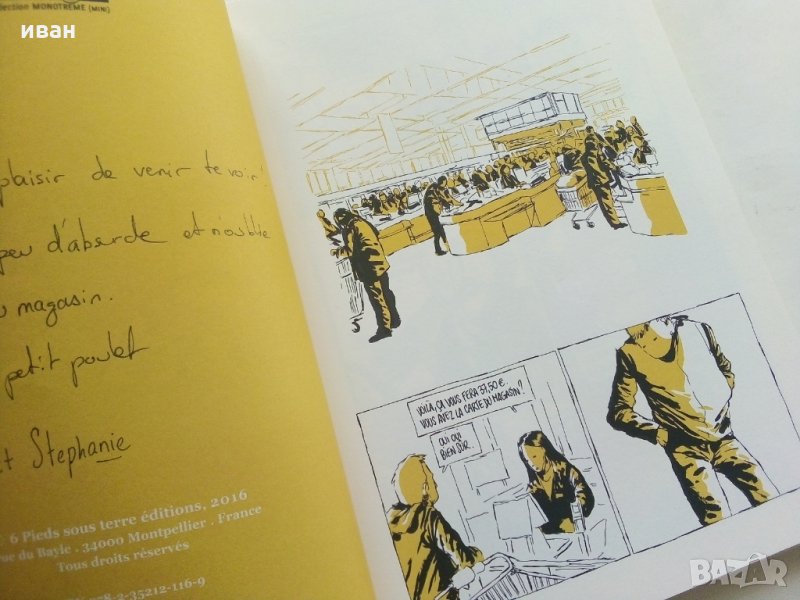 иван
lection MONOTREME (MINI)
plaisir de venir te voir!
peu d'absurde et n'oublie
magasin.
petit poulet
Stephanie
6 Pieds sous terre éditions, 2016
rue du Bayle . 34000 Montpellier . France
Tous droits réservés
978-2-35212-116-9
VOILÀ, ÇA VOUS FERA 37,50 €.
VOUS AVEZ LA CARTE DU MAGASIN?
OUI OUI
BIEN SÛR.
BAZAR